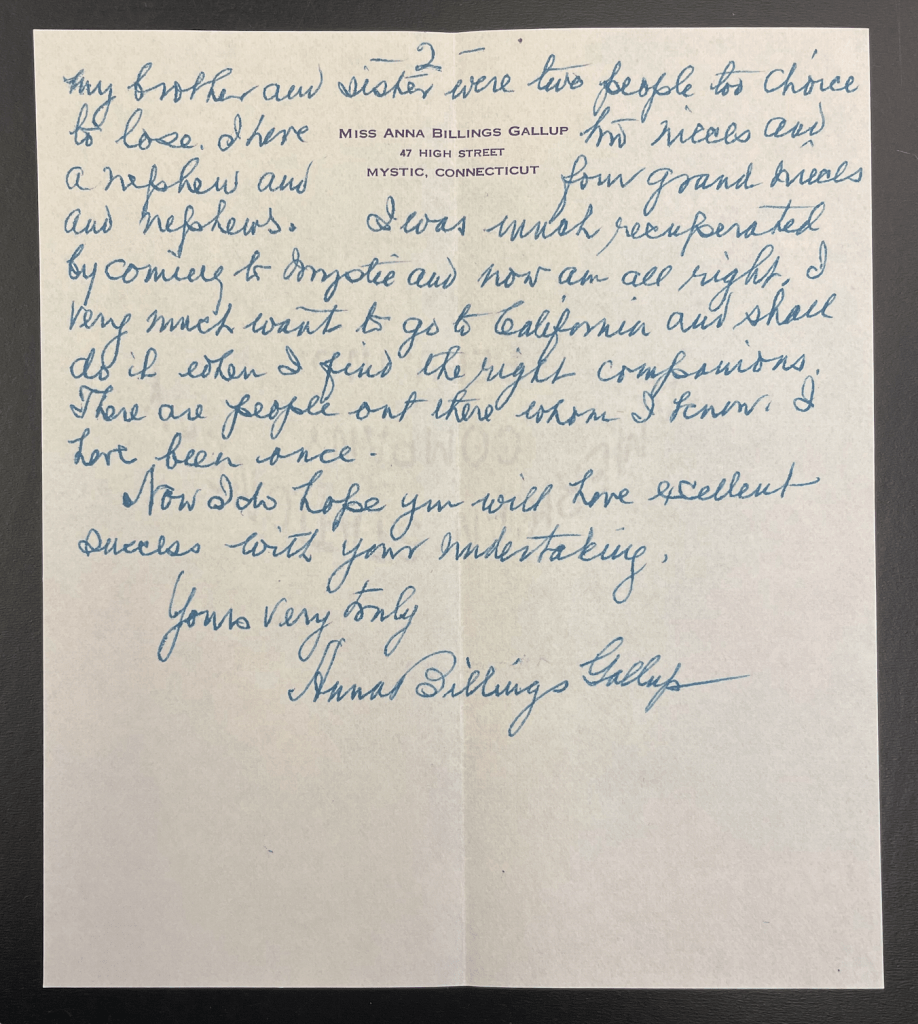 - 2 -
my brother and sister were two people too choice
to lose. I have MISS ANNA BILLINGS GALLUP two nieces and
47 HIGH STREET
a nephew and MYSTIC, CONNECTICUT four grand nieces
and nephews. I was much recuperated
by coming to Mystic and now am all right. I
very much want to go to California and shall
do it when I find the right companions.
There are people out there whom I know. I
have been once.
Now I do hope you will have excellent
success with your undertaking.
Yours very truly
Anna Billings Gallup